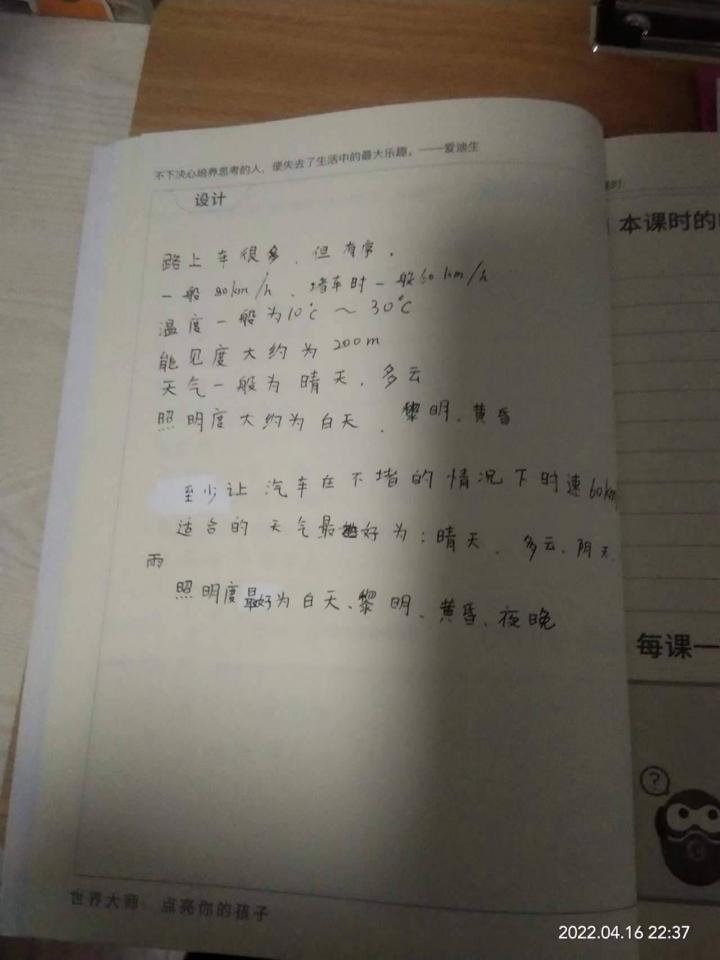 不下决心培养思考的人，便失去了生活中的最大乐趣。——爱迪生
设计
路上车很多、但有常.
一般80km/h、堵车时一般60km/h
温度一般为10℃～30℃
能见度大约为200m
天气一般为晴天、多云
照明度大约为白天、黎明、黄昏
至少让汽车在不堵的情况下时速60km
适合的天气最好为：晴天、多云、阴天、
雨
照明度最好为白天、黎明、黄昏、夜晚
世界大师 点亮你的孩子
本课时的
每课一
?
2022.04.16 22:37